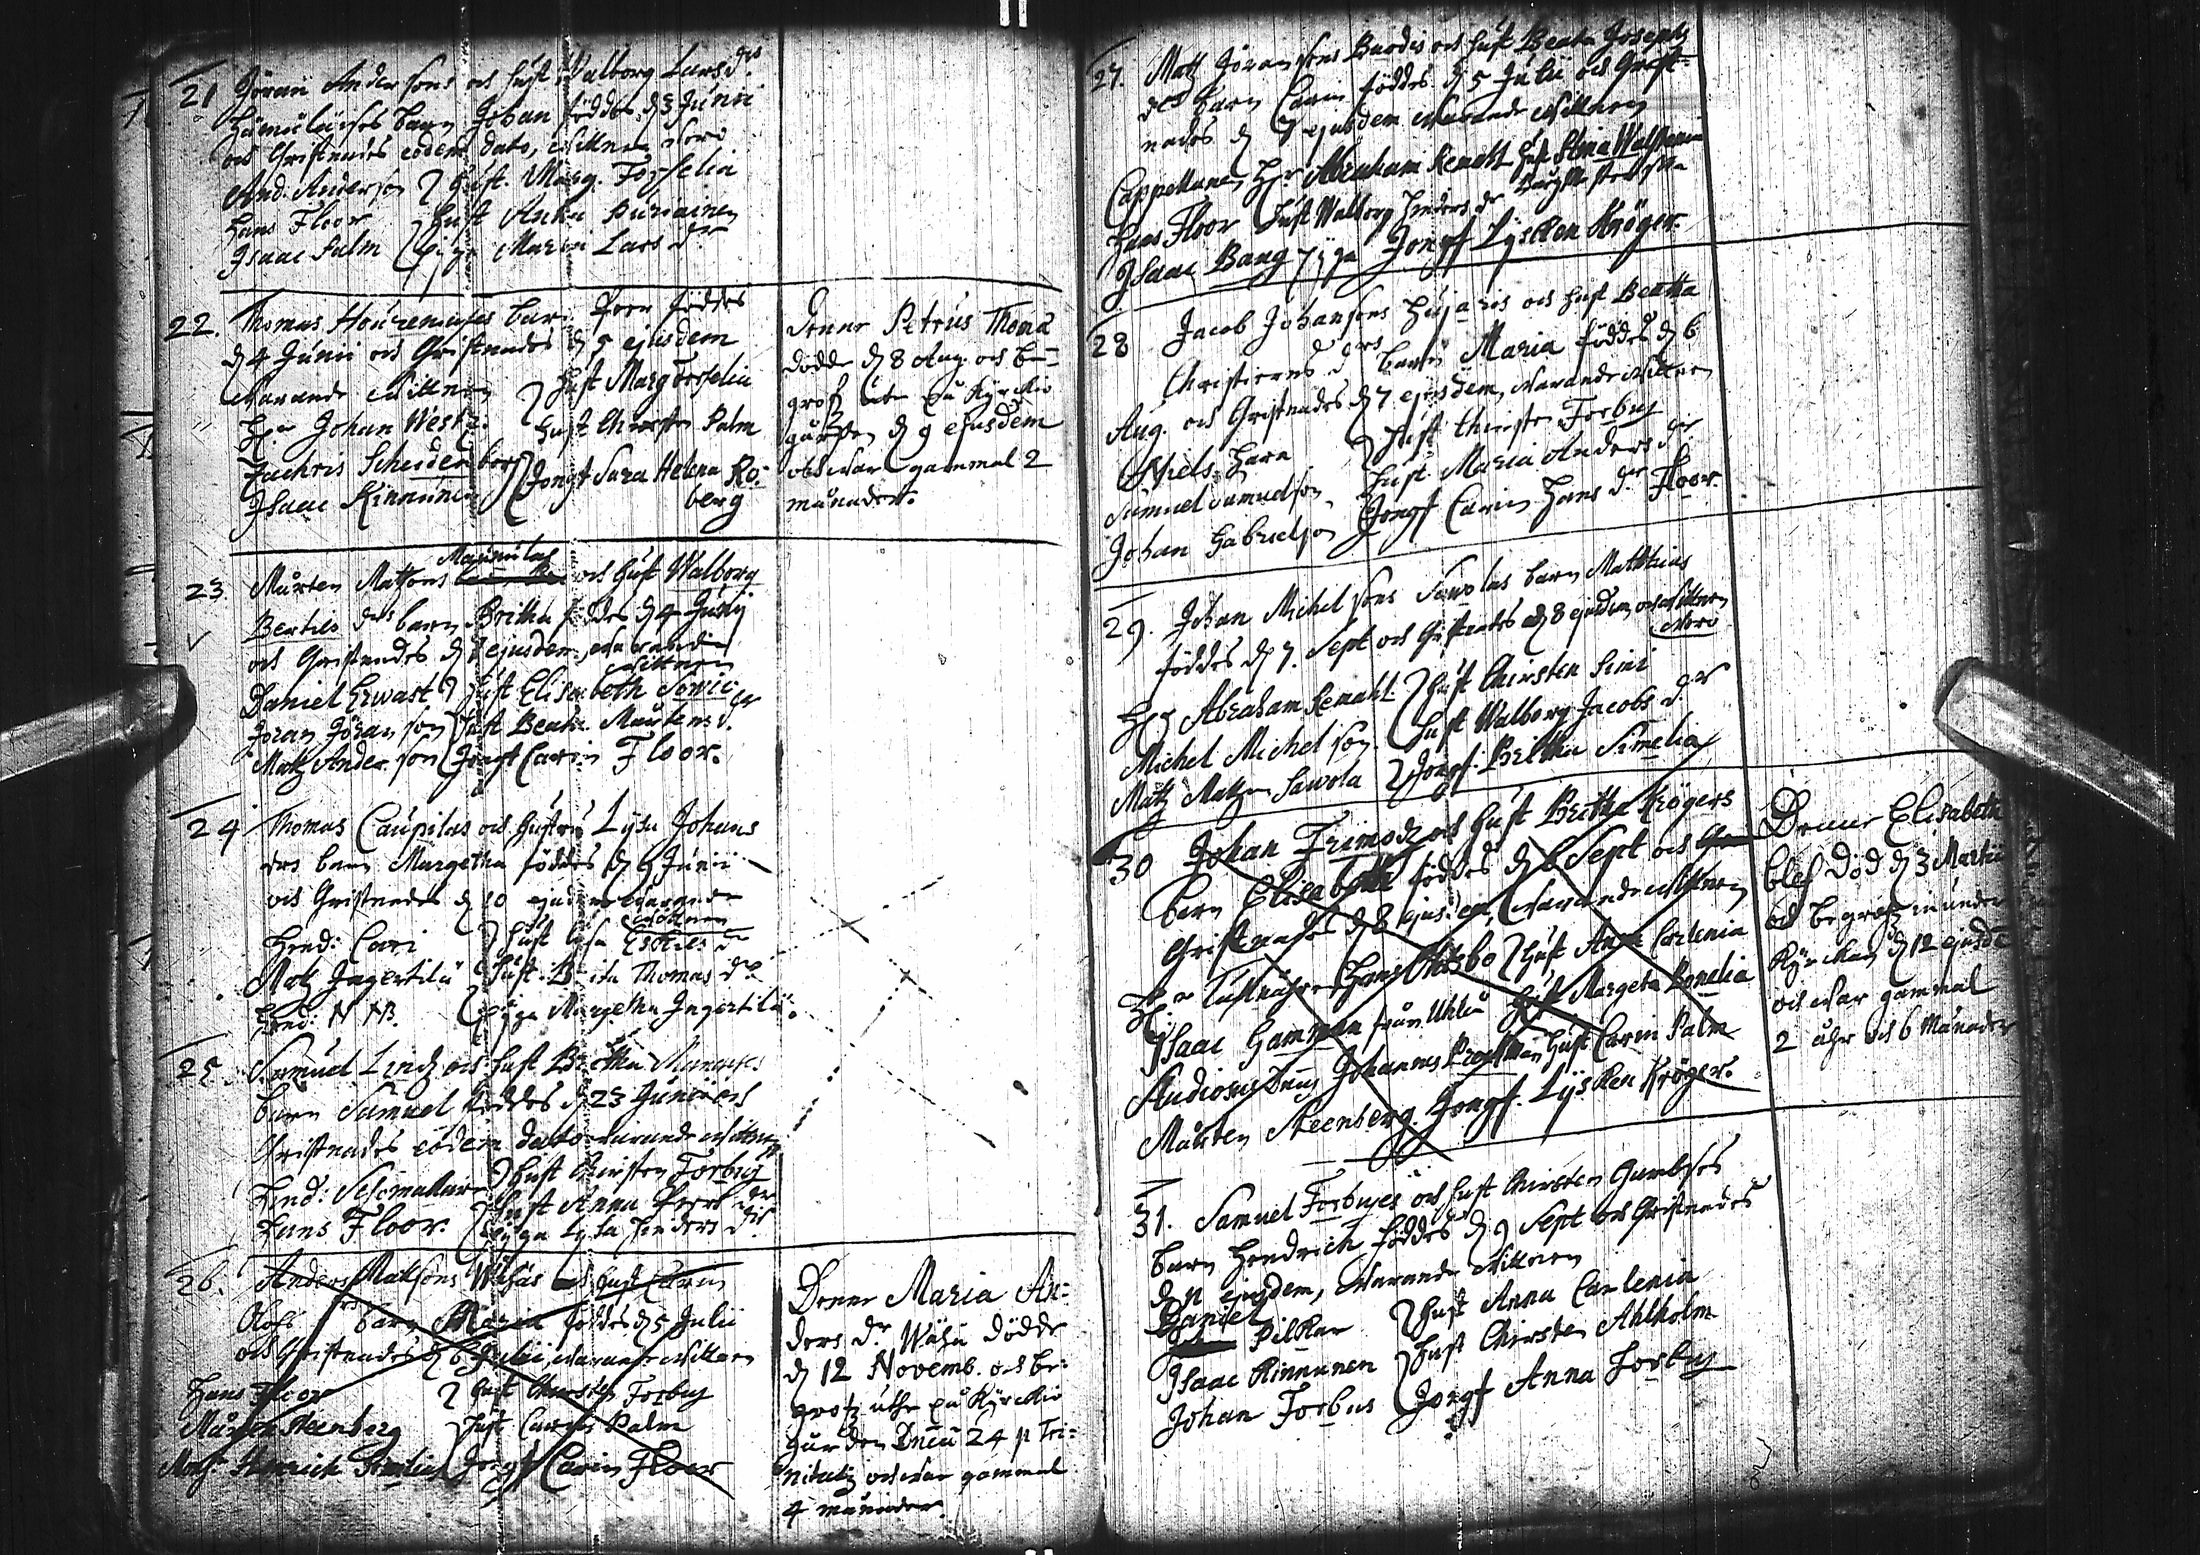 21 Jöran Andersons och hust Walborg Larsdrs
barn Johan föddes d 3 Junii
och Christnades eodem dato, wittnen woro
And. Anderson hust. Marg. Forselia
Hans Floor hust Anna
Isaac Palm Piga Maria Lars dr
22. Thomas barn Peer föddes
d 4 Junii och Christnades d 5 ejusdem
warande wittnen
Hr Johan Westz: hust Marg Forselia
Zachris Scheidenberg hust Chirstin Palm
Isaac Kinnunen Jongf Sara Helena Ro:
berg
Denne Petrus Thomæ
dödde d 8 Aug. och be=
grofz ute på Kyrckio
gården d 9 ejusdem
och war gammal 2
månader.
23. Mårten Matsons och hust Walborg
Bertils drs barn Britha föddes d 4 Junij
och Christnades d 7 ejusdem, warande
wittnen
Daniel Erwast hust Elisabeth
Jöran Jöranson hust Beata Mårtens dr
Matz Anderson Jongf Carin Floor.
24 Thomas Caupilas och hustru Lysa Johans
drs barn Margetha föddes d 9 Junii
och Christnades d 10 ejusdem warande
wittnen
Hend: Cari hust Lysa Eskils dr
Matz Ingertilä hust. Brita Thomas dr
Hend: N NB. Piga Margetha Ingertilä.
25. Samuel Lindz och hust Britha
barn Samuel föddes d 23 Junii och
Christnades eodem dato warande wittnen
Hend: Skomakare hust Chirsten Forbus
Hans Floor. hust Anna Peers dr
Piga Lysa Henders dr
26. Anders Matsons Wähäs och hust Carin
drs barn Maria föddes d 5 Julii
och Christnades d 6 Julii, warande wittnen
Hans Floor hust Chirsten Forbus
Mårten Steenberg hust Carin Palm
Hinrich Jongf Carin Floor
Denne Maria An:
ders dr Wähä dödde
d 12 Novemb. och be:
grofz uthe på Kyrckio
gården Dnica 24 p Tri:
nitatis och war gammal
4 månader.
27. Matz Jöransons Bardis och hust Beata Josephs
drs barn Carin föddes d 5 Julii och Christ=
nades d 7 ejusdem warande wittnen
Cappellanen Hr Abraham Remahl hust Stina
Hans Floor hust Walborg Henders dr
Isaac Bang Piga Jongf Lysken Kröger.
28 Jacob Johansons och hust Beatha
Christierns d drs barn Maria föddes d 6
Aug. och Christnades d 7 ejusdem, warande wittnen
Niels Hara hust Chirsten Forbus
Samuel Samuelson hust Maria Anders dr
Johan Gabrielson Jongf Carin Hans dr Floor.
29. Johan Michelsons Sawolas barn Matthias
föddes d 7. Sept och Christnades d 8 ejusdem och wittnen
woro
Hr Abraham Remahl. hust Chirsten Simi
Michel Michelson. hust Walborg Jacobs dr
Matz Matzon Sawola Jongf. Britha Simelia
30 Johan Frimodz och hust Britha Krögers
barn Elisabeth föddes d 6 Sept och
Christnades d 8 ejusdem, warande wittnen
Hr Tullnären Hans hust Anna Carlenia
Isaac Gamman från Uhlå hust Margeta Bonelia
Studiosus Dnus Johannes hust Carin Palm
Mårten Steenberg. Jongf. Lysken Kröger.
Denne Elisabeth
blef död d 3 Martii
och begrofz inunder
Kyrckan d 12 ejusdē
och war gammal
2 åhr och 6 Månader
31. Samuel Forbuses och hust Chirsten
barn Hendrich föddes d 9 Sept och Christnades
d 11 ejusdem, warande wittnen
Daniel Pilkar hust Anna Carlenia
Isaac Kinnunen hust Chirsten Ahlholm
Johan Forbus Jongf Anna Forbus